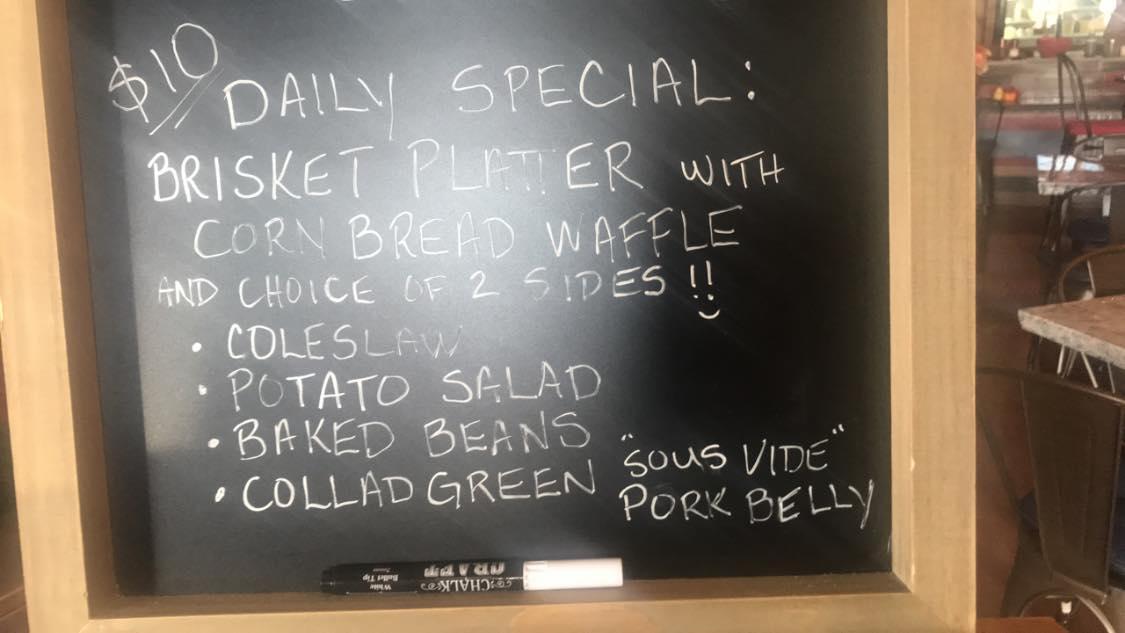 $10/DAILY SPECIAL:
BRISKET PLATTER WITH
CORN BREAD WAFFLE
AND CHOICE OF 2 SIDES !!
• COLESLAW
• POTATO SALAD
• BAKED BEANS
• COLLAD GREEN
"SOUS VIDE"
PORK BELLY
White
Bullet Tip
CHALK
CRAFT